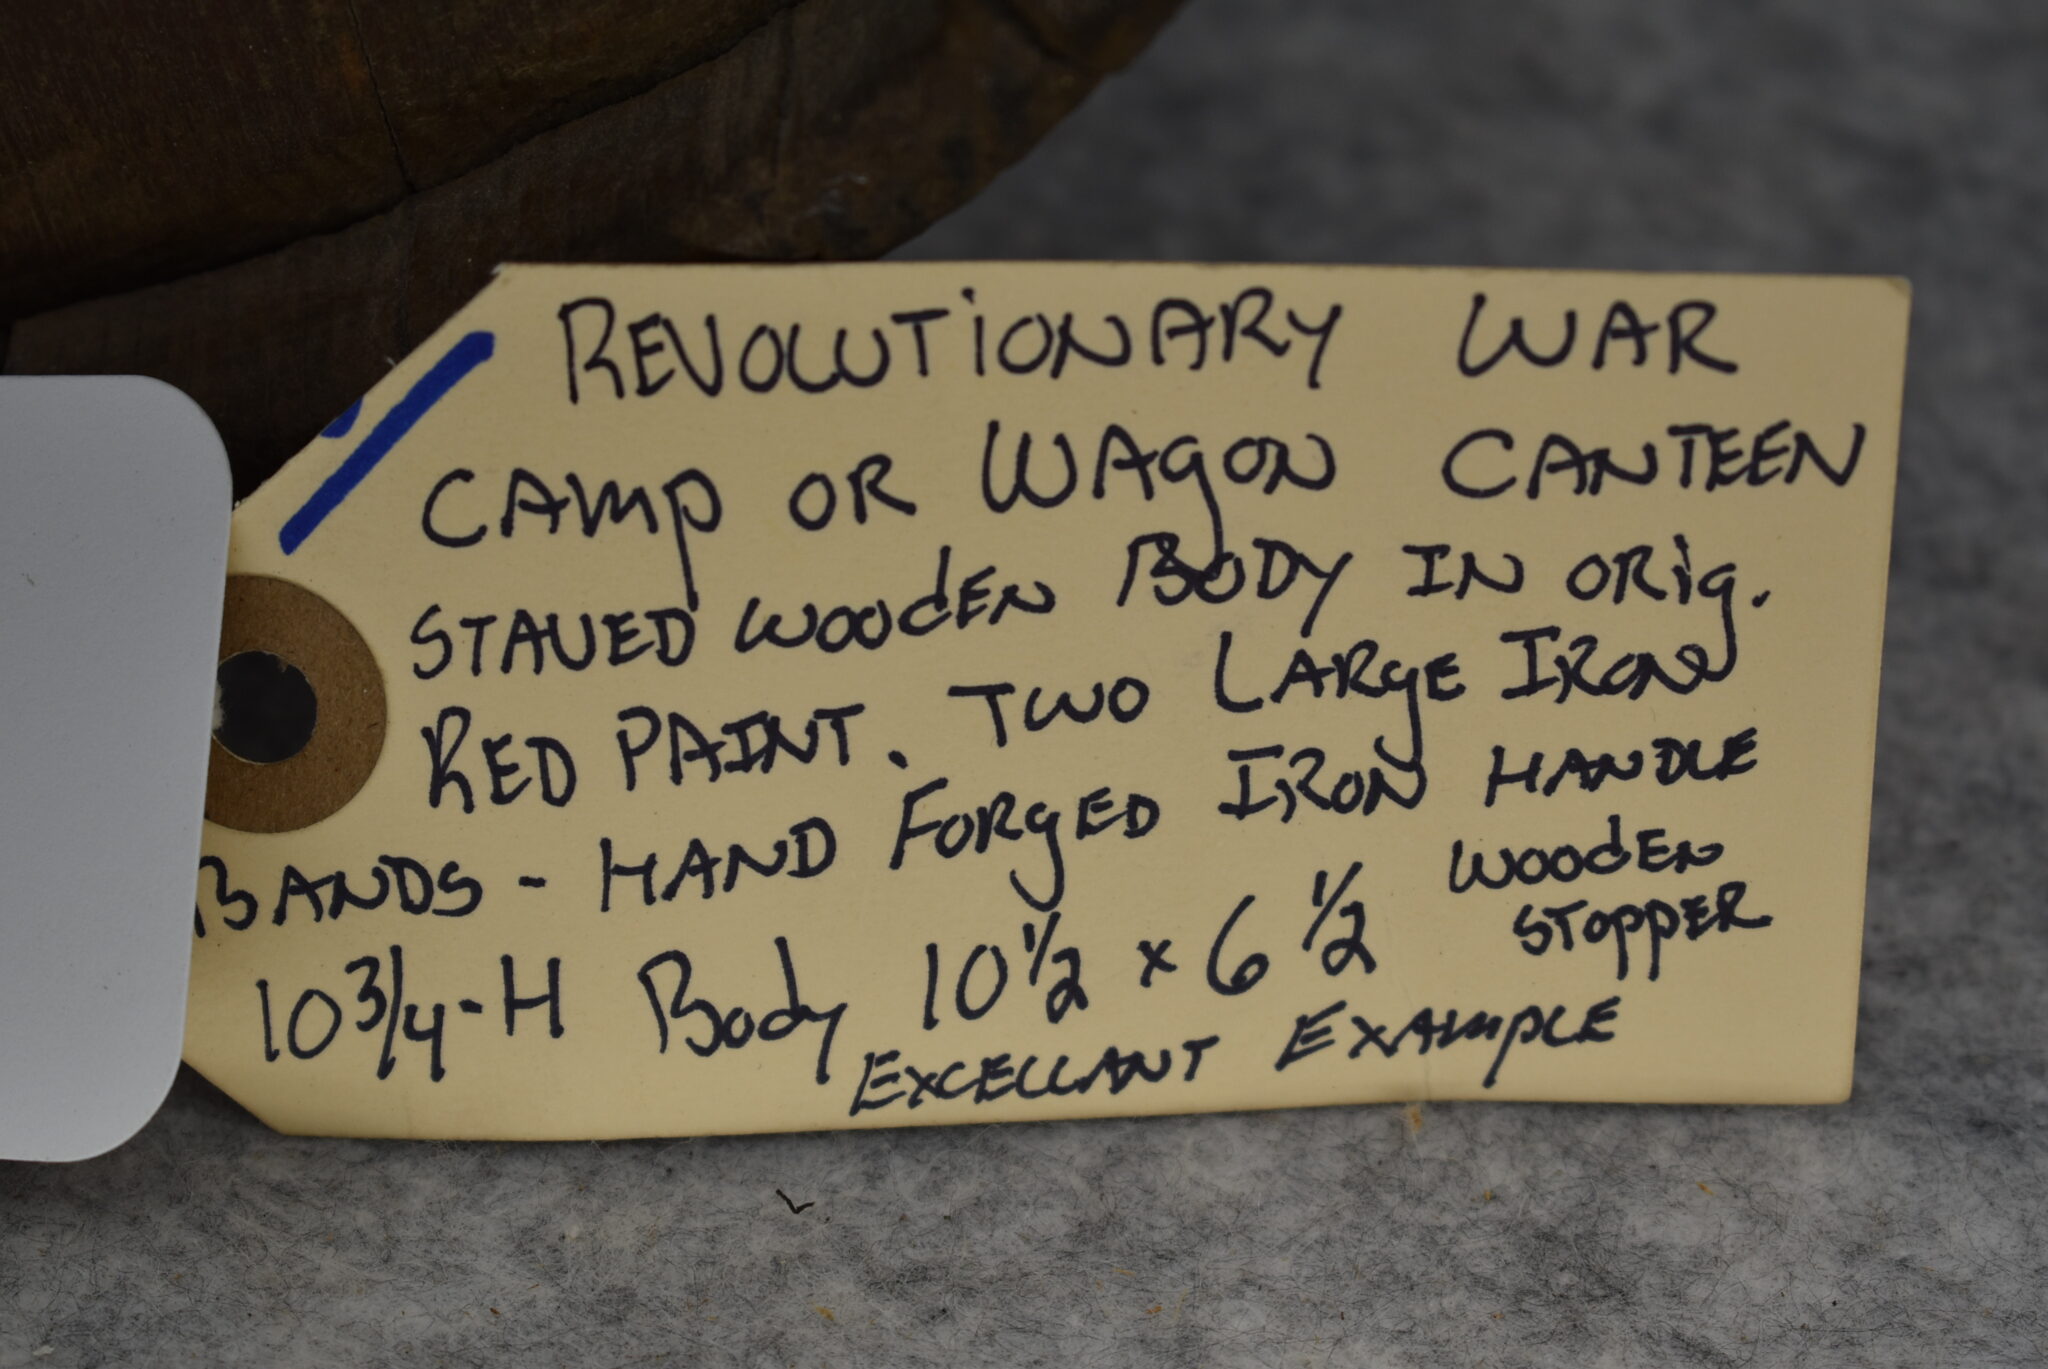 REVOLUTIONARY WAR
CAMP OR WAGON CANTEEN
STAVED WOODEN BODY IN ORIG.
RED PAINT. TWO LARGE IRON
BANDS - HAND FORGED IRON HANDLE
WOODEN
STOPPER
10 3/4 - H Body 10 1/2 x 6 1/2
EXCELLANT EXAMPLE